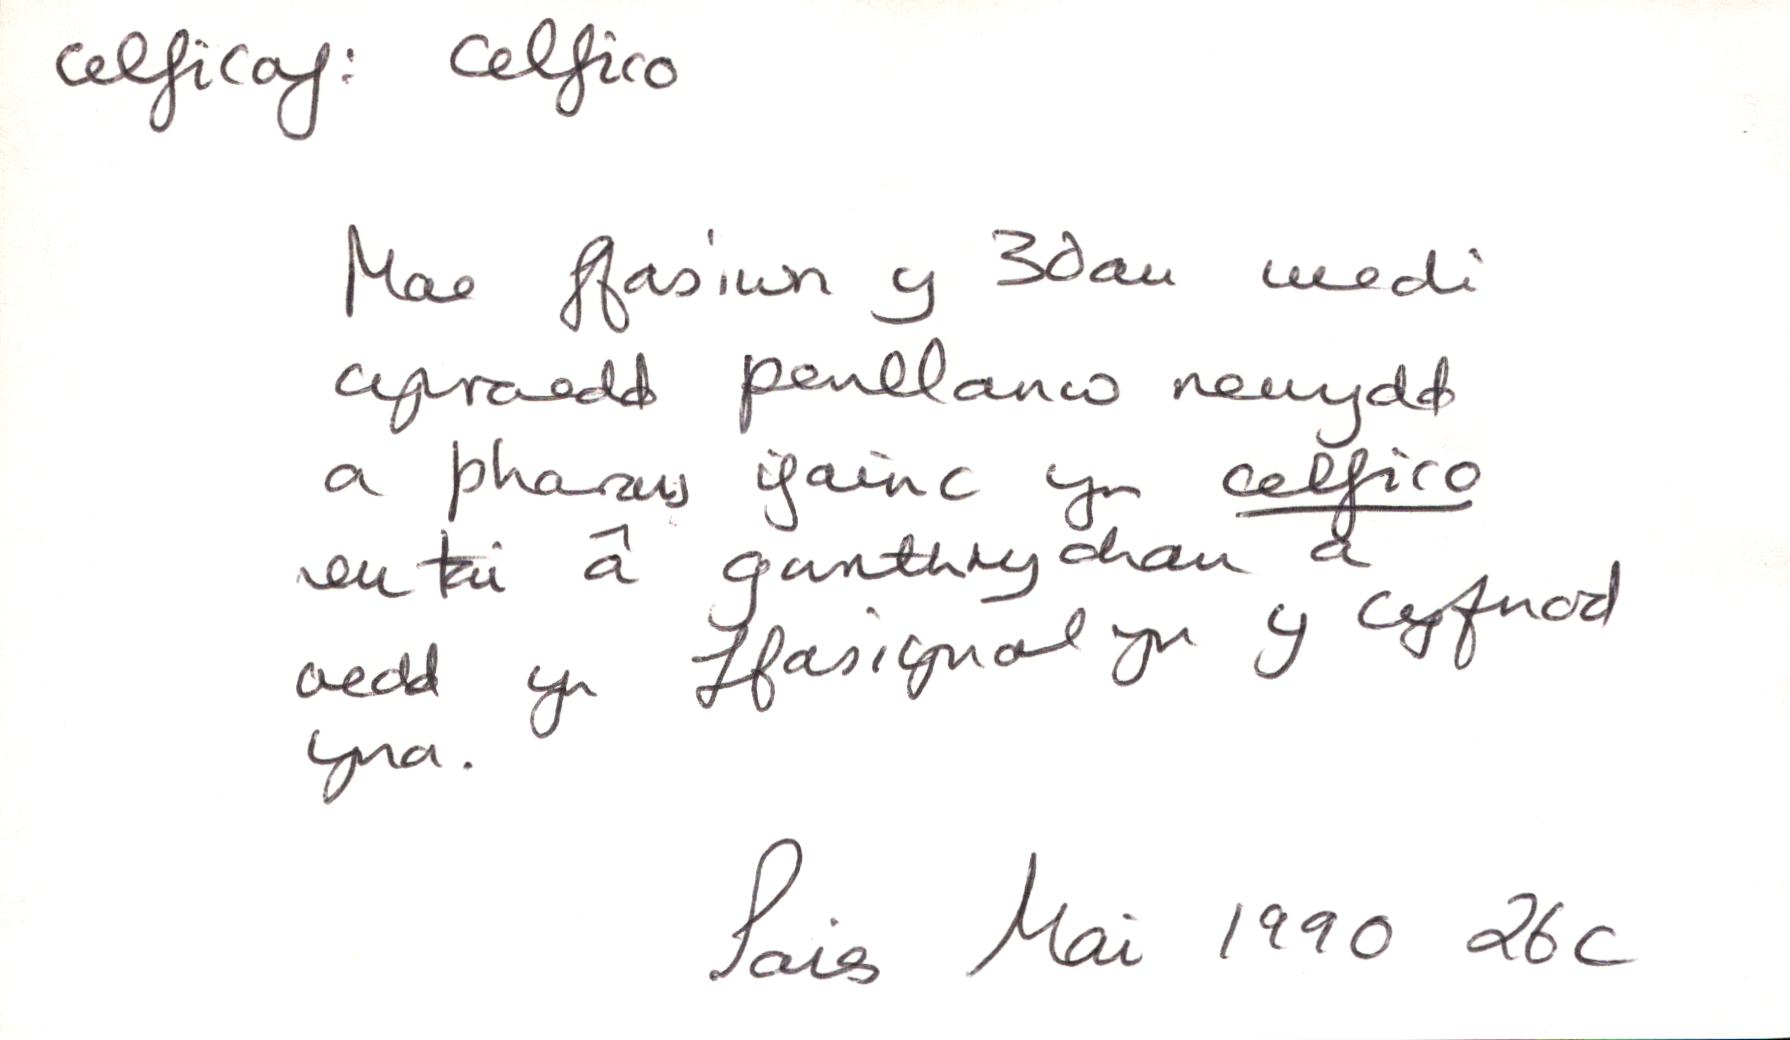 celficaf: celfico
Mae ffasiwn y 30au wedi
cyrraedd penllanw newydd
a pharau ifainc yn celfico
eu tai â ganthrychau a
oedd yn ffasiynol yn y cyfnod
yna.
Pais Mai 1990 26c